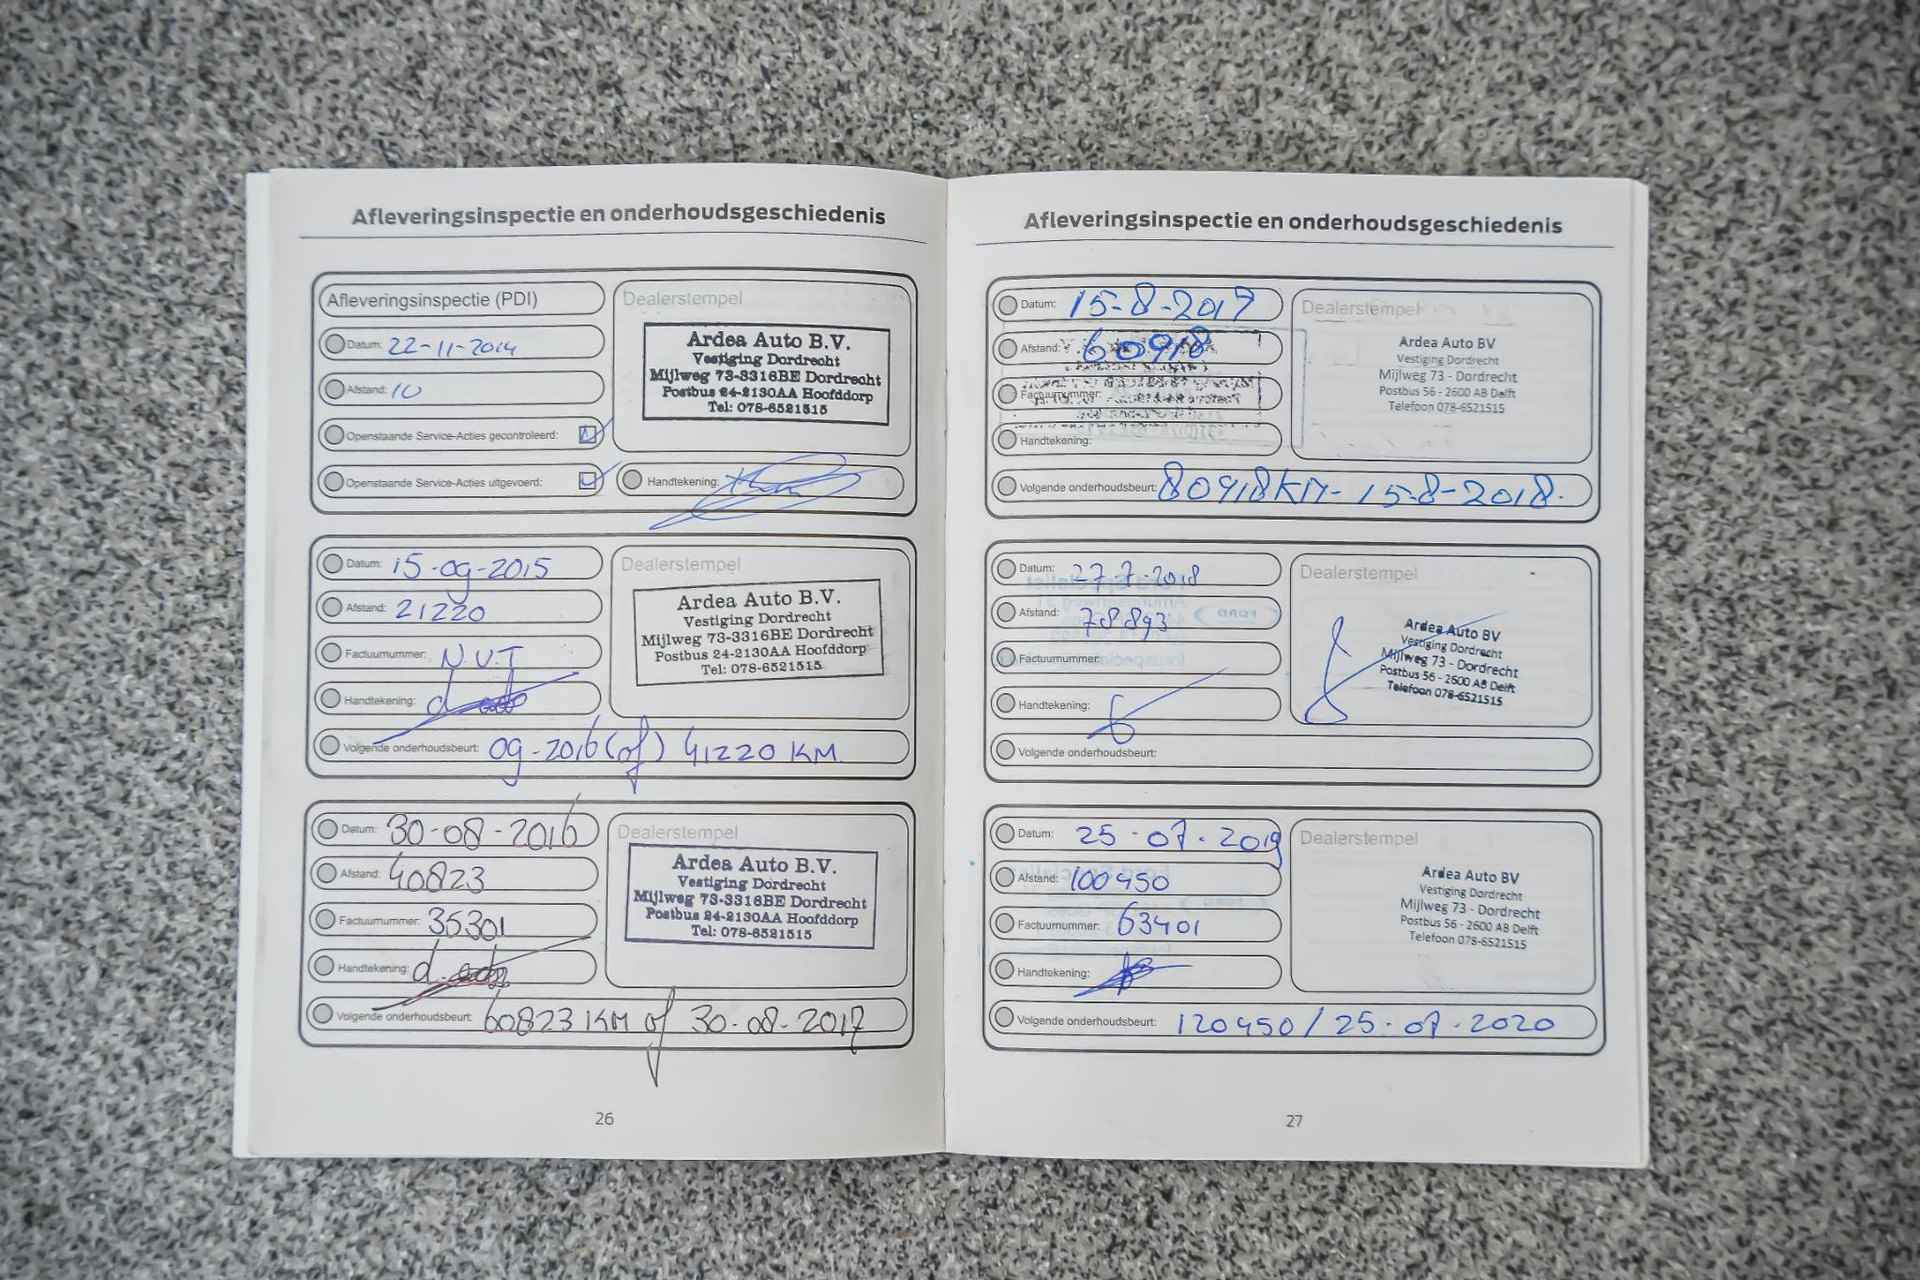 Afleveringsinspectie en onderhoudsgeschiedenis
Afleveringsinspectie (PDI)
Datum: 22-11-2014
Afstand: 10
Openstaande Service-Acties gecontroleerd:
Openstaande Service-Acties uitgevoerd:
Dealerstempel
Ardea Auto B.V.
Vestiging Dordrecht
Mijlweg 73-3316BE Dordrecht
Postbus 24-2130AA Hoofddorp
Tel: 078-6521515
Handtekening:
Datum: 15-09-2015
Afstand: 21220
Factuurnummer: N.V.T
Handtekening:
Dealerstempel
Ardea Auto B.V.
Vestiging Dordrecht
Mijlweg 73-3316BE Dordrecht
Postbus 24-2130AA Hoofddorp
Tel: 078-6521515
Volgende onderhoudsbeurt: 09-2016 (of) 41220 KM
Datum: 30-08-2016
Afstand: 40823
Factuurnummer: 35301
Handtekening:
Dealerstempel
Ardea Auto B.V.
Vestiging Dordrecht
Mijlweg 73-3316BE Dordrecht
Postbus 24-2130AA Hoofddorp
Tel: 078-6521515
Volgende onderhoudsbeurt: 60823 KM of 30-08-2017
26
Afleveringsinspectie en onderhoudsgeschiedenis
Datum: 15-8-2017
Afstand: 60918
Factuurnummer:
Handtekening:
Dealerstempel
Ardea Auto BV
Vestiging Dordrecht
Mijlweg 73 - Dordrecht
Postbus 56 - 2600 AB Delft
Telefoon 078-6521515
Volgende onderhoudsbeurt: 80918 KM - 15-8-2018.
Datum: 27-7-2018
Afstand: 78893
Factuurnummer:
Handtekening:
Dealerstempel
Ardea Auto BV
Vestiging Dordrecht
Mijlweg 73 - Dordrecht
Postbus 56 - 2600 AB Delft
Telefoon 078-6521515
Volgende onderhoudsbeurt:
Datum: 25-07-2019
Afstand: 100450
Factuurnummer: 63401
Handtekening:
Dealerstempel
Ardea Auto BV
Vestiging Dordrecht
Mijlweg 73 - Dordrecht
Postbus 56 - 2600 AB Delft
Telefoon 078-6521515
Volgende onderhoudsbeurt: 120450 / 25-07-2020
27